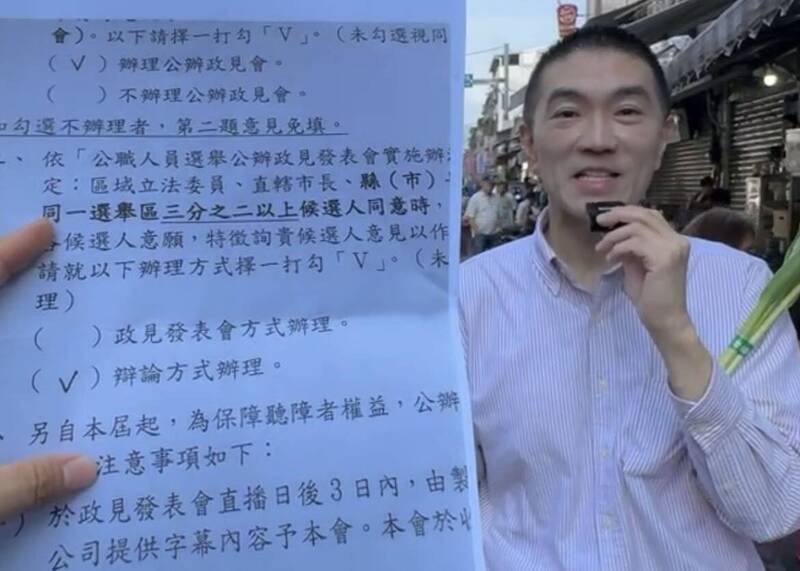 會)。以下請擇一打勾「V」。(未勾選視同
(V)辦理公辦政見會。
( )不辦理公辦政見會。
勾選不辦理者,第二題意見免填。
、依「公職人員選舉公辦政見發表會實施辦法
定:區域立法委員、直轄市長、縣(市)
同一選舉區三分之二以上候選人同意時,
候選人意願,特徵詢貴候選人意見以作
請就以下辦理方式擇一打勾「V」。(未
理)
( )政見發表會方式辦理。
(V)辯論方式辦理。
、另自本屆起,為保障聽障者權益,公辦
注意事項如下:
)於政見發表會直播日後3日內,由製
公司提供字幕內容予本會。本會於收